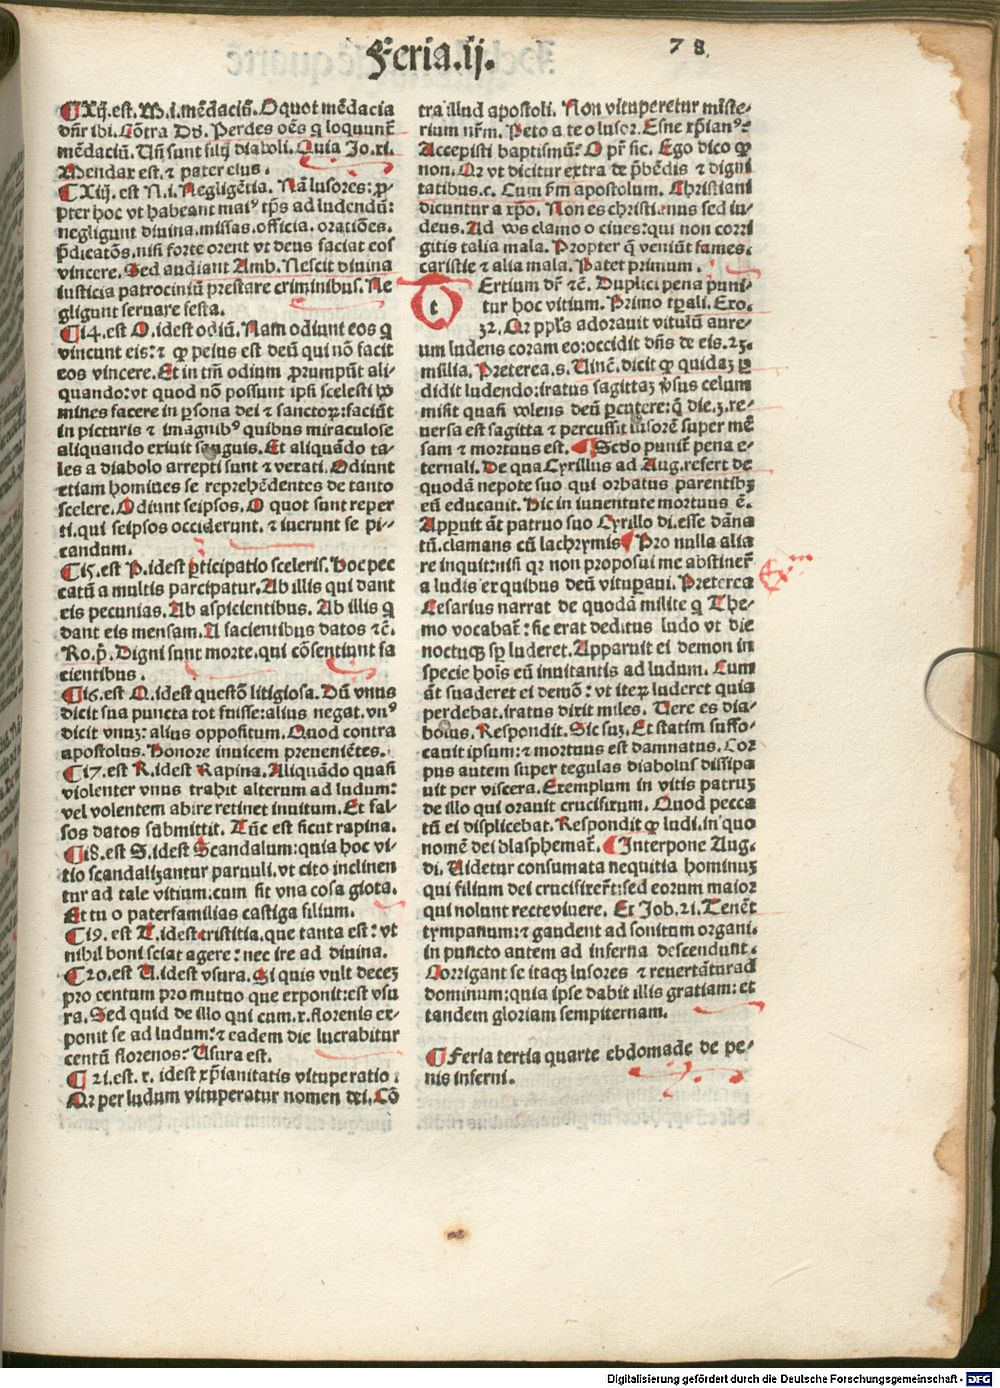 Feria.ij.
78.
¶Xij.est.M.i.mẽdaciũ.O quot mẽdacia
dñr ibi.Cõtra Dð. Perdes oẽs q̃ loquunt̃
mẽdaciũ. Uñ sunt filij diaboli. Quia Jo.xi.
Mendax est.⁊ pater eius.
¶Xiij. est N.i. Negligẽtia. Nã lusores: ꝓ-
pter hoc vt habeant maiꝰ tp̃s ad ludendũ:
negligunt diuina.missas.officia. oratiões.
p̃dicatões.nisi forte orent vt deus faciat eos
vincere. Sed audiant Amb. Nescit diuina
iusticia patrociniũ prestare criminibus. Ne
gligunt seruare festa.
¶14.est O.idest odiũ. Nam odiunt eos q̃
vincunt eis:⁊ ꝙ peius est deũ qui nõ facit
eos vincere. Et in tm̃ odium ꝓrumpũt ali-
quando:vt quod nõ possunt ipsi scelesti ho
mines facere in ꝑsona dei ⁊ sanctoꝝ:faciũt
in picturis ⁊ imaginibꝰ quibus miraculose
aliquando exiuit sanguis. Et aliquãdo ta-
les a diabolo arrepti sunt ⁊ vexati. Odiunt
etiam homines se reprehẽdentes de tanto
scelere. Odiunt seipsos. O quot sunt reper
ti.qui seipsos occiderunt. ⁊ iuerunt se pi-
candum.
¶15.est P.idest ꝑticipatio sceleris. Hoc pec
catũ a multis parcipatur. Ab illis qui dant
eis pecunias. Ab aspicientibus. Ab illis q̃
dant eis mensam. A facientibus datos ⁊c̃.
Ro.p̃. Digni sunt morte.qui cõsentiunt fa
cientibus.
¶16.est Q.idest questõ litigiosa. Dũ vnus
dicit sua puncta tot fuisse:alius negat.vnꝰ
dicit vnuꝫ: alius oppositum. Quod contra
apostolus. Honore inuicem preueniẽtes.
¶17.est R.idest Rapina. Aliquãdo quasi
violenter vnus trahit alterum ad ludum:
vel volentem abire retinet inuitum. Et fal-
sos datos submittit. Tũc est sicut rapina.
¶18.est S.idest Scandalum:quia hoc vi-
tio scandalizantur paruuli.vt cito inclinen
tur ad tale vitium:cum sit vna cosa giota.
Et tu o paterfamilias castiga filium.
¶19. est T.idest tristitia.que tanta est: vt
nihil boni sciat agere: nec ire ad diuina.
¶20.est U.idest vsura. Si quis vult deceꝫ
pro centum pro mutuo que exponit:est vsu
ra. Sed quid de illo qui cum.x.florenis ex-
ponit se ad ludum:⁊ eadem die lucrabitur
centũ florenos: Usura est.
¶21.est.x. idest xp̃ianitatis vituperatio.
Qꝛ per ludum vituperatur nomen xp̃i. Cõ
tra illud apostoli. Non vituperetur miste-
rium nr̃m. Peto a te o lusor. Esne xp̃ianꝰ:
Accepisti baptismũ: O pr̃ sic. Ego dico ꝙ
non. Qꝛ vt dicitur extra de p̃bẽdis ⁊ digni
tatibus.c. Cum ẜm apostolum. Christiani
dicuntur a xp̃o. Non es christianus sed iu-
deus. Ad vos clamo o ciues:qui non corri
gitis talia mala. Propter q̃ veniũt fames.
caristie ⁊ alia mala. Patet primum.
t Ertium dr̃ ⁊c̃. Duplici pena puni-
tur hoc vitium. Primo tꝑali. Exo.
32. Qꝛ ppl̃s adorauit vitulũ aure-
um ludens coram eo:occidit dñs de eis.23.
milia. Preterea.s. Uincẽ.dicit ꝙ quidaꝫ ꝑ
didit ludendo:iratus sagittaꝫ v̾sus celum
misit quasi volens deũ ꝑcutere:q̃ die.3.re-
uersa est sagitta ⁊ percussit lusorẽ super mẽ
sam ⁊ mortuus est. ¶ Scðo punit̃ pena e-
ternali. De qua Cyrillus ad Aug.refert de
quodã nepote suo qui orbatus parentibꝫ
eũ educauit. Hic in iuuentute mortuus ẽ.
Apꝑuit ãt patruo suo Cyrillo di.esse dãna
tũ.clamans cũ lachrymis¶ Pro nulla alia
re inquit:nisi qꝛ non proposui me abstiner̃
a ludis ex quibus deũ vituꝑaui. Preterea
Cesarius narrat de quodã milite q̃ The-
mo vocabat̃: sic erat deditus ludo vt die
noctuqꝫ sꝑ luderet. Apparuit ei demon in
specie hoĩs eũ inuitantis ad ludum. Cum
ãt suaderet ei demõ: vt iteꝝ luderet quia
perdebat.iratus dixit miles. Uere es dia-
bolus. Respondit. Sic suꝫ. Et statim suffo-
cauit ipsum:⁊ mortuus est damnatus. Cor
pus autem super tegulas diabolus dissipa
uit per viscera. Exemplum in vitis patruꝫ
de illo qui orauit crucifixum. Quod pecca
tũ ei displicebat. Respondit ꝙ ludi.in quo
nomẽ dei blasphemat̃. ¶Interpone Aug.
di. Uidetur consumata nequitia hominuꝫ
qui filium dei crucifixer̃t:sed eorum maior
qui nolunt recte viuere. Et Job.21. Tenẽt
tympanum:⁊ gaudent ad sonitum organi.
in puncto autem ad inferna descendunt.
Corrigant se itaqꝫ lusores ⁊ reuertãtur ad
dominum:quia ipse dabit illis gratiam: et
tandem gloriam sempiternam.
¶ Feria tertia quarte ebdomade de pe-
nis inferni.
Digitalisierung gefördert durch die Deutsche Forschungsgemeinschaft - DFG